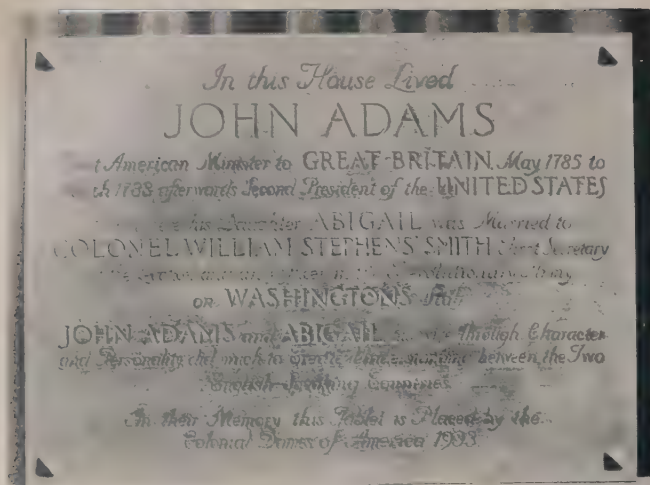 In this House Lived
JOHN ADAMS
American Minister to GREAT BRITAIN May 1785 to
1788 afterwards Second President of the UNITED STATES
his Daughter ABIGAIL was Married to
COLONEL WILLIAM STEPHENS SMITH Secretary
Army
on WASHINGTONS Staff
JOHN ADAMS and ABIGAIL through Character
and Personality did much to create between the Two
English Speaking Countries
In their Memory this Tablet is Placed by the
Colonial Dames of America 1933